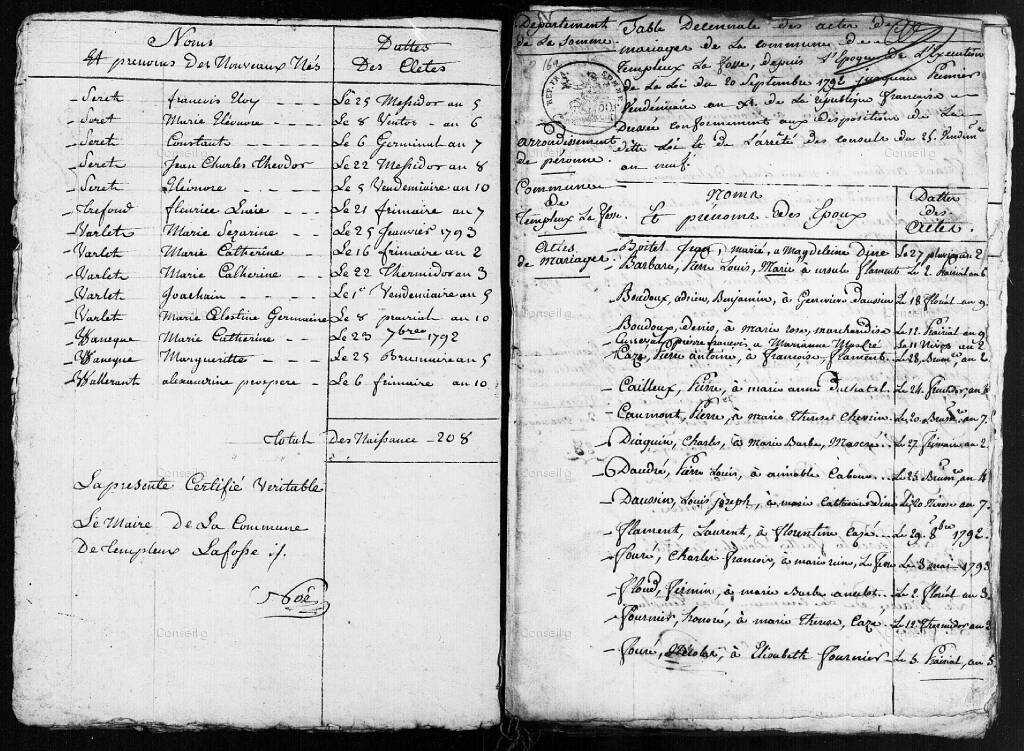 Noms
Et prenoms Des Nouveaux Nés
Dattes
Des Cletes
Seret francois Eloy Le 25 Messidor an 5
Seret Marie Eléonore Le 8 Ventos an 6
Seret Constant Le 6 Germinal an 7
Seret Jean Charles Theodor Le 22 Messidor an 8
Seret Eléonore Le 5 Vendemiaire an 10
Trefond Le 21 frimaire an 7
Varlet Marie Sezarine Le 25 Janvier 1793
Varlet Marie Catherine Le 16 frimaire an 2
Varlet Marie Catherine Le 22 Thermidor an 3
Varlet Joachain Le 1er Vendemiaire an 5
Varlet Marie Celestine Germaine Le 8 prairial an 10
Waneque Marie Catherine Le 23 7bre 1792
Waneque Margueritte Le 25 brumaire an 5
Wallerant alexandrine prospere Le 6 frimaire an 10
Total Des Naissance 208
La presente Certifié Veritable
Le Maire De La Commune
De templeux Lafosse
Departement
de La Somme
arrondissement
de péronne
Commune
de
Templeux Le fosse
Actes
de mariages
Table Decennale des actes de
mariages de La commune de
Templeux Le fosse, depuis L'Epoque de L'Execution
de La Loi du 20 Septembre 1792 jusqu'au Premier
Vendémiaire an XI de La république française
Dressée conformement aux dispositions de La
dite Loi et de L'arrêté des consuls du 25 Vendre
an neuf
Noms
Et prénoms des Epoux
Dattes
des
Actes
Boitel Jean, marié, a Magdeleine Dine Le 27 pluviose 2
Barbare, Pierre Louis, Marié a ursule flament Le 2 Prairial an 6
Boudoux, adrien, Benjamin, à Genevieve Daussin Le 18 floréal an 9
Boudoux, denis, à marie rose, marchandise Le 12 Prairial an 9
pierre francois, a Marianne Le 11 Nivos an 2
Caze, Pierre antoine, à françoise, flament Le 28 Brumre an 2
Cailleux, Pierre, à marie anne Duhatel Le 24
Caumont, Pierre, à marie Therese Chevin Le 20 Brumre an 7
Diaquin, Charles, à Marie Barbe, Mascré Le 27 frimaire an 2
Daudré, Pierre Louis, à aimable Caboure Le 25 Brumre an 4
Daussin, Louis joseph, à marie Catherine dine Le 20 Nivose an 7
flament, Laurent, à florentine Cazé Le 29 8bre 1792
fouré, Charles francois, à marie reine, Le fevre Le 3 mai 1793
floud, firmin, à marie Barbe ancelot Le 2 floréal an 3
fournier, honoré, à marie Therese, Cazé Le 12 Thermidor an 3
fouré, Nicolas, à Elisabeth fournier Le 5 Prairial, an 5
Conseil g